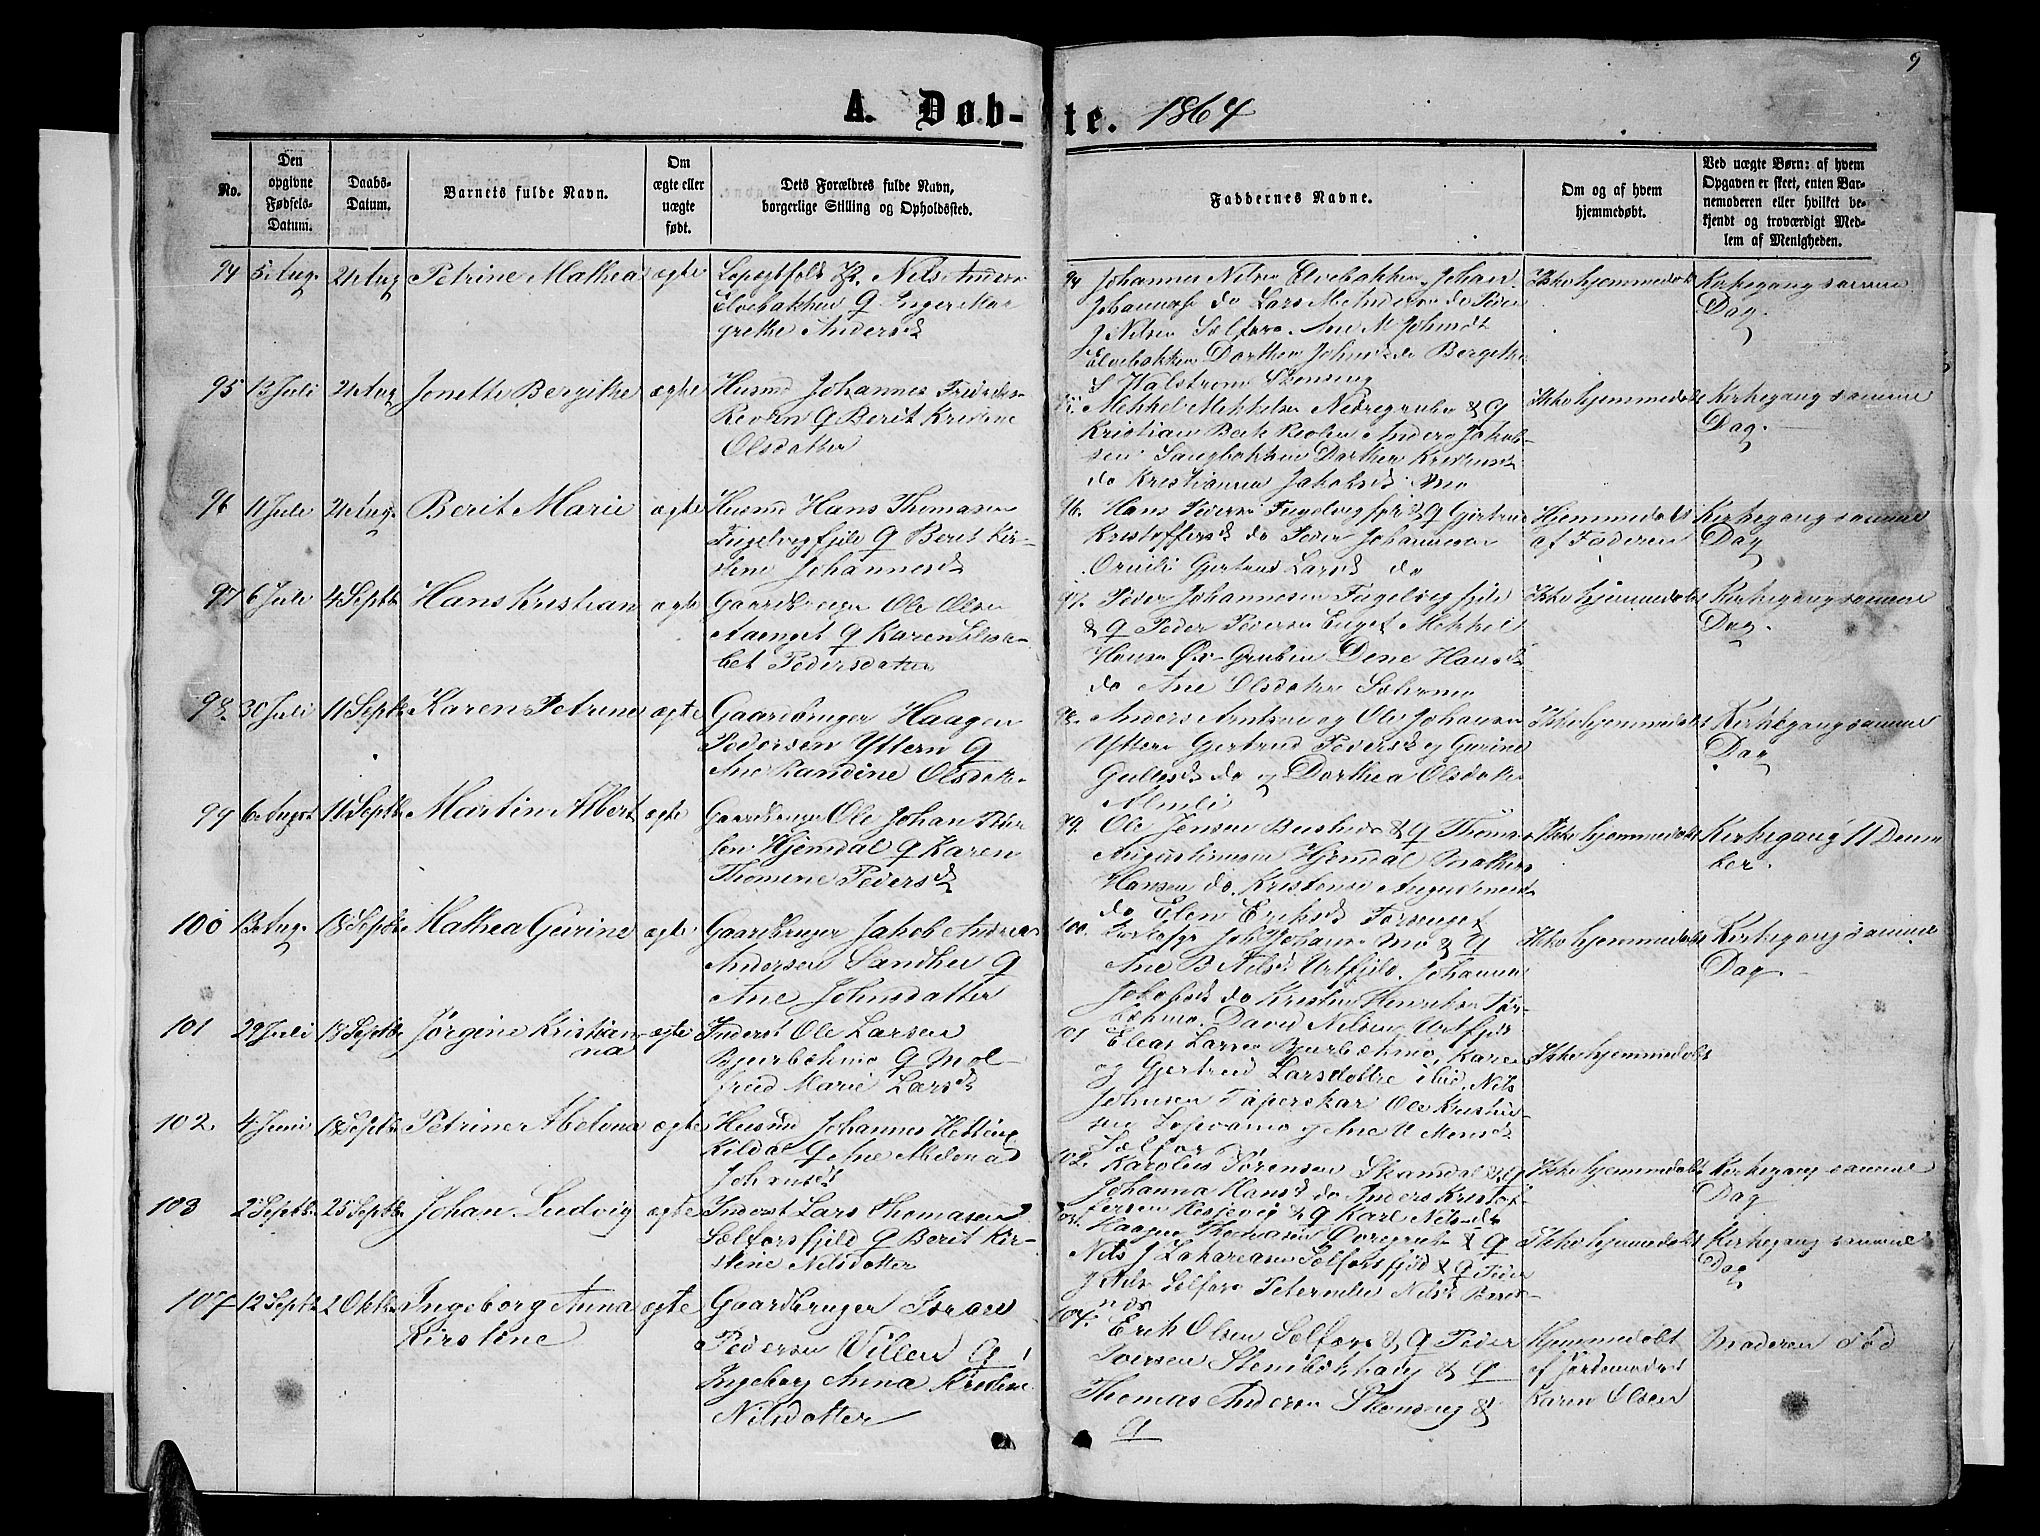 9
A. Døb-te. 1864
No.
Den
opgivne
Fødsels-
Datum.
Daabs-
Datum.
Barnets fulde Navn.
Om
ægte eller
uægte
født.
Dets Forældres fulde Navn,
borgerlige Stilling og Opholdssted.
Faddernes Navne.
Om og af hvem
hjemmedøbt.
Ved uægte Børn: af hvem
Opgaven er skeet, enten Bar-
nemoderen eller hvilket be-
kjendt og troværdigt Med-
lem af Menigheden.
94 5 Aug. 21 Aug Petrine Mathea ægte
Nils Anders
Elvebakken & Inger Mar
grethe Andersd
94 Johannes Nilsen Elvebakken Johan
Johannes do Lars M Andersen do Peder
J Nilsen Sælfors. Ane M Johnsd
Elvebakken Dorthea Johnsd do Bergithe
Walstrøm Stenseng
Ikke hjemmedøbt
Kirkegang samme
Dag.
95 13 Juli 21 Aug Jonette Bergithe ægte
Husmd Johannes Fredriks
& Berit Kristine
Olsdatter
95. Mekkel Mekkelsen Nedregruben & Q
Kristian Berk Anders Jakob-
sen Langbakken Dorthea
do Kristianna Jakobsd Mo
Ikke hjemmedøbt
Kirkegang samme
Dag.
96 11 Juli 21 Aug. Berit Marie ægte
Husmd Hans Thomasen
Fugelvigfjeld & Berit Kir-
stine Johannesd
96. Hans Pedersen Fugelvigfjeld & Q Gjertrud
Kristoffersd do Peder Johannesen
Gjertrud Larsd do
Hjemmedøbt
af Faderen
Kirkegang samme
Dag
97 6 Juli 4 Septbr Hans Kristian ægte
Gaardbruger Ole Olsen
Aaenget & Karen Elisa-
bet Pedersdatter
97. Peder Johannesen Fugelvigfjeld
& Q Peder Pedersen Enget Mekkel
Hansen Øv Gruben Dene Hansd
do Ane Olsdatter
Ikke hjemmedøbt
Kirkegang samme
Dag.
98. 30 Juli 11 Septbr Karen Petrine ægte
Gaardbruger Haagen
Pedersen Yttern &
Ane Randine Olsdatter
98. Anders Arntsen og Ole Johansen
Yttern Gjertrud Pedersd og Gurine
do og Dorthea Olsdatter
Almli
Ikke hjemmedøbt
Kirkegang samme
Dag
99 6 August 11 Septbr Martin Albert ægte
Gaardbruger Ole Johan
Hjemdal & Karen
Thomine Pedersd
99. Ole Jensen & Q Thomas
Augustinusen Hjemdal Mathias
Hansen do. Kristense Augustinusd
do Elen Eriksd
Ikke hjemmedøbt
Kirkegang 11 Decem
ber.
100 13 Aug. 18 Septbr Mathea Gurine ægte
Gaardbruger Jakob Andreas
Andersen Sandhei &
Ane Johnsdatter
100. Johans Mo & Q
Ane B Nilsd Urtfjeld. Johanna
Jakobsd do Kristen Henriksen
David Nilsen Urtfjeld
Ikke hjemmedøbt
Kirkegang samme
Dag.
101 29 Juli 18 Septbr Jørgine Kristian-
na ægte
Inderst Ole Larsen
Bjurbækmo & Mol-
frid Marie Larsd
101 Elias Larsen Bjurbækmo, Karen
og Gjertrud Larsdøttre ibid. Nils
Johnsen Taperskar Ole Kristen-
sen og Ane U Monsd
Sælfor
Ikke hjemmedøbt
102. 4 Juni 18 Septbr Petrine Abelona ægte
Husmd Johannes
Kildal & Ane Abelona
Johansd
102. Karolius Sørensen Skamdal & Q
Johanna Hansd do Anders Kristof
fersen & Q Karl Nilsen do
Ikke hjemmedøbt
Kirkegang samme
Dag
103 2 Septbr 25 Septbr Johan Ludvig ægte
Inderst Lars Thomasen
Sælforsfjeld & Berit Kir-
stine Nilsdatter
103. Haagen Thomasen & Q
Nils J Zakariasen Sælforsfjeld & Q Peder
J Nilsen Sælfors Peternille Nilsd
do
Ikke hjemmedøbt
Kirkegang samme
Dag
104 12 Septbr 2 Oktbr Ingeborg Anna
Kirstine ægte
Gaardbruger
Pedersen Villen &
Ingeborg Anna Kristine
Nilsdatter
104. Erik Olsen Sælfors & Q Peder
Iversen Stenbækhaug & Q
Thomas Andersen Stenseng &
Q
Hjemmedøbt
af Jordemoder
Karen Olsen
Moderen død